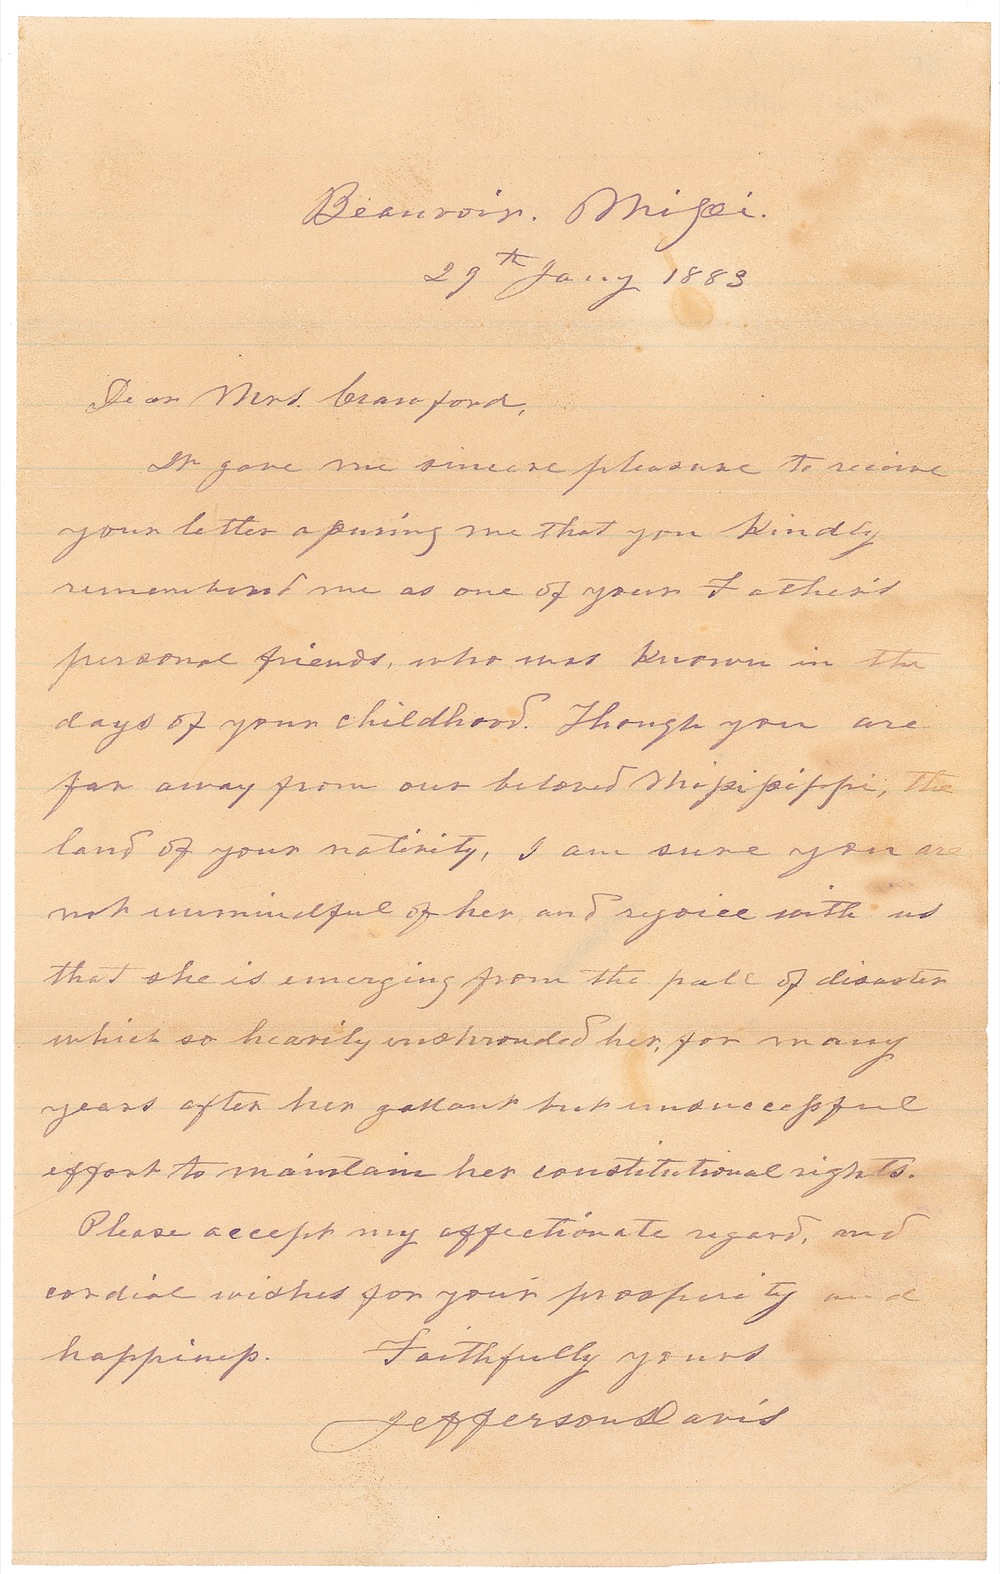 Beauvoir. Missi.
29th Jany 1883
Dear Mrs. Crawford,
It gave me sincere pleasure to receive
your letter assuring me that you kindly
remembered me as one of your Father's
personal friends, who was known in the
days of your childhood. Though you are
far away from our beloved Mississippi, the
land of your nativity, I am sure you are
not unmindful of her and rejoice with us
that she is emerging from the pall of disaster
which so heavily enshrouded her, for many
years after her gallant but unsuccessful
effort to maintain her constitutional rights.
Please accept my affectionate regard, and
cordial wishes for your prosperity and
happiness. Faithfully yours
Jefferson Davis